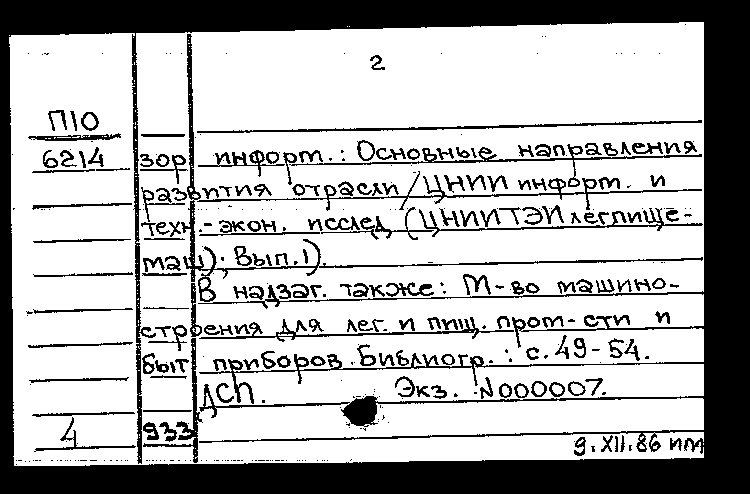 2
П10
6214 зор информ.: Основные направления
развития отрасли / ЦНИИ информ. и
техн.-экон. исслед (ЦНИИТЭИлегпище-
маш); Вып.1).
В надзаг. также: М-во машино-
строения для лег. и пищ. пром-сти и
быт приборов. Библиогр.: с. 49-54.
ДСП. Экз. N000007.
4 933
9.XII.86 ил